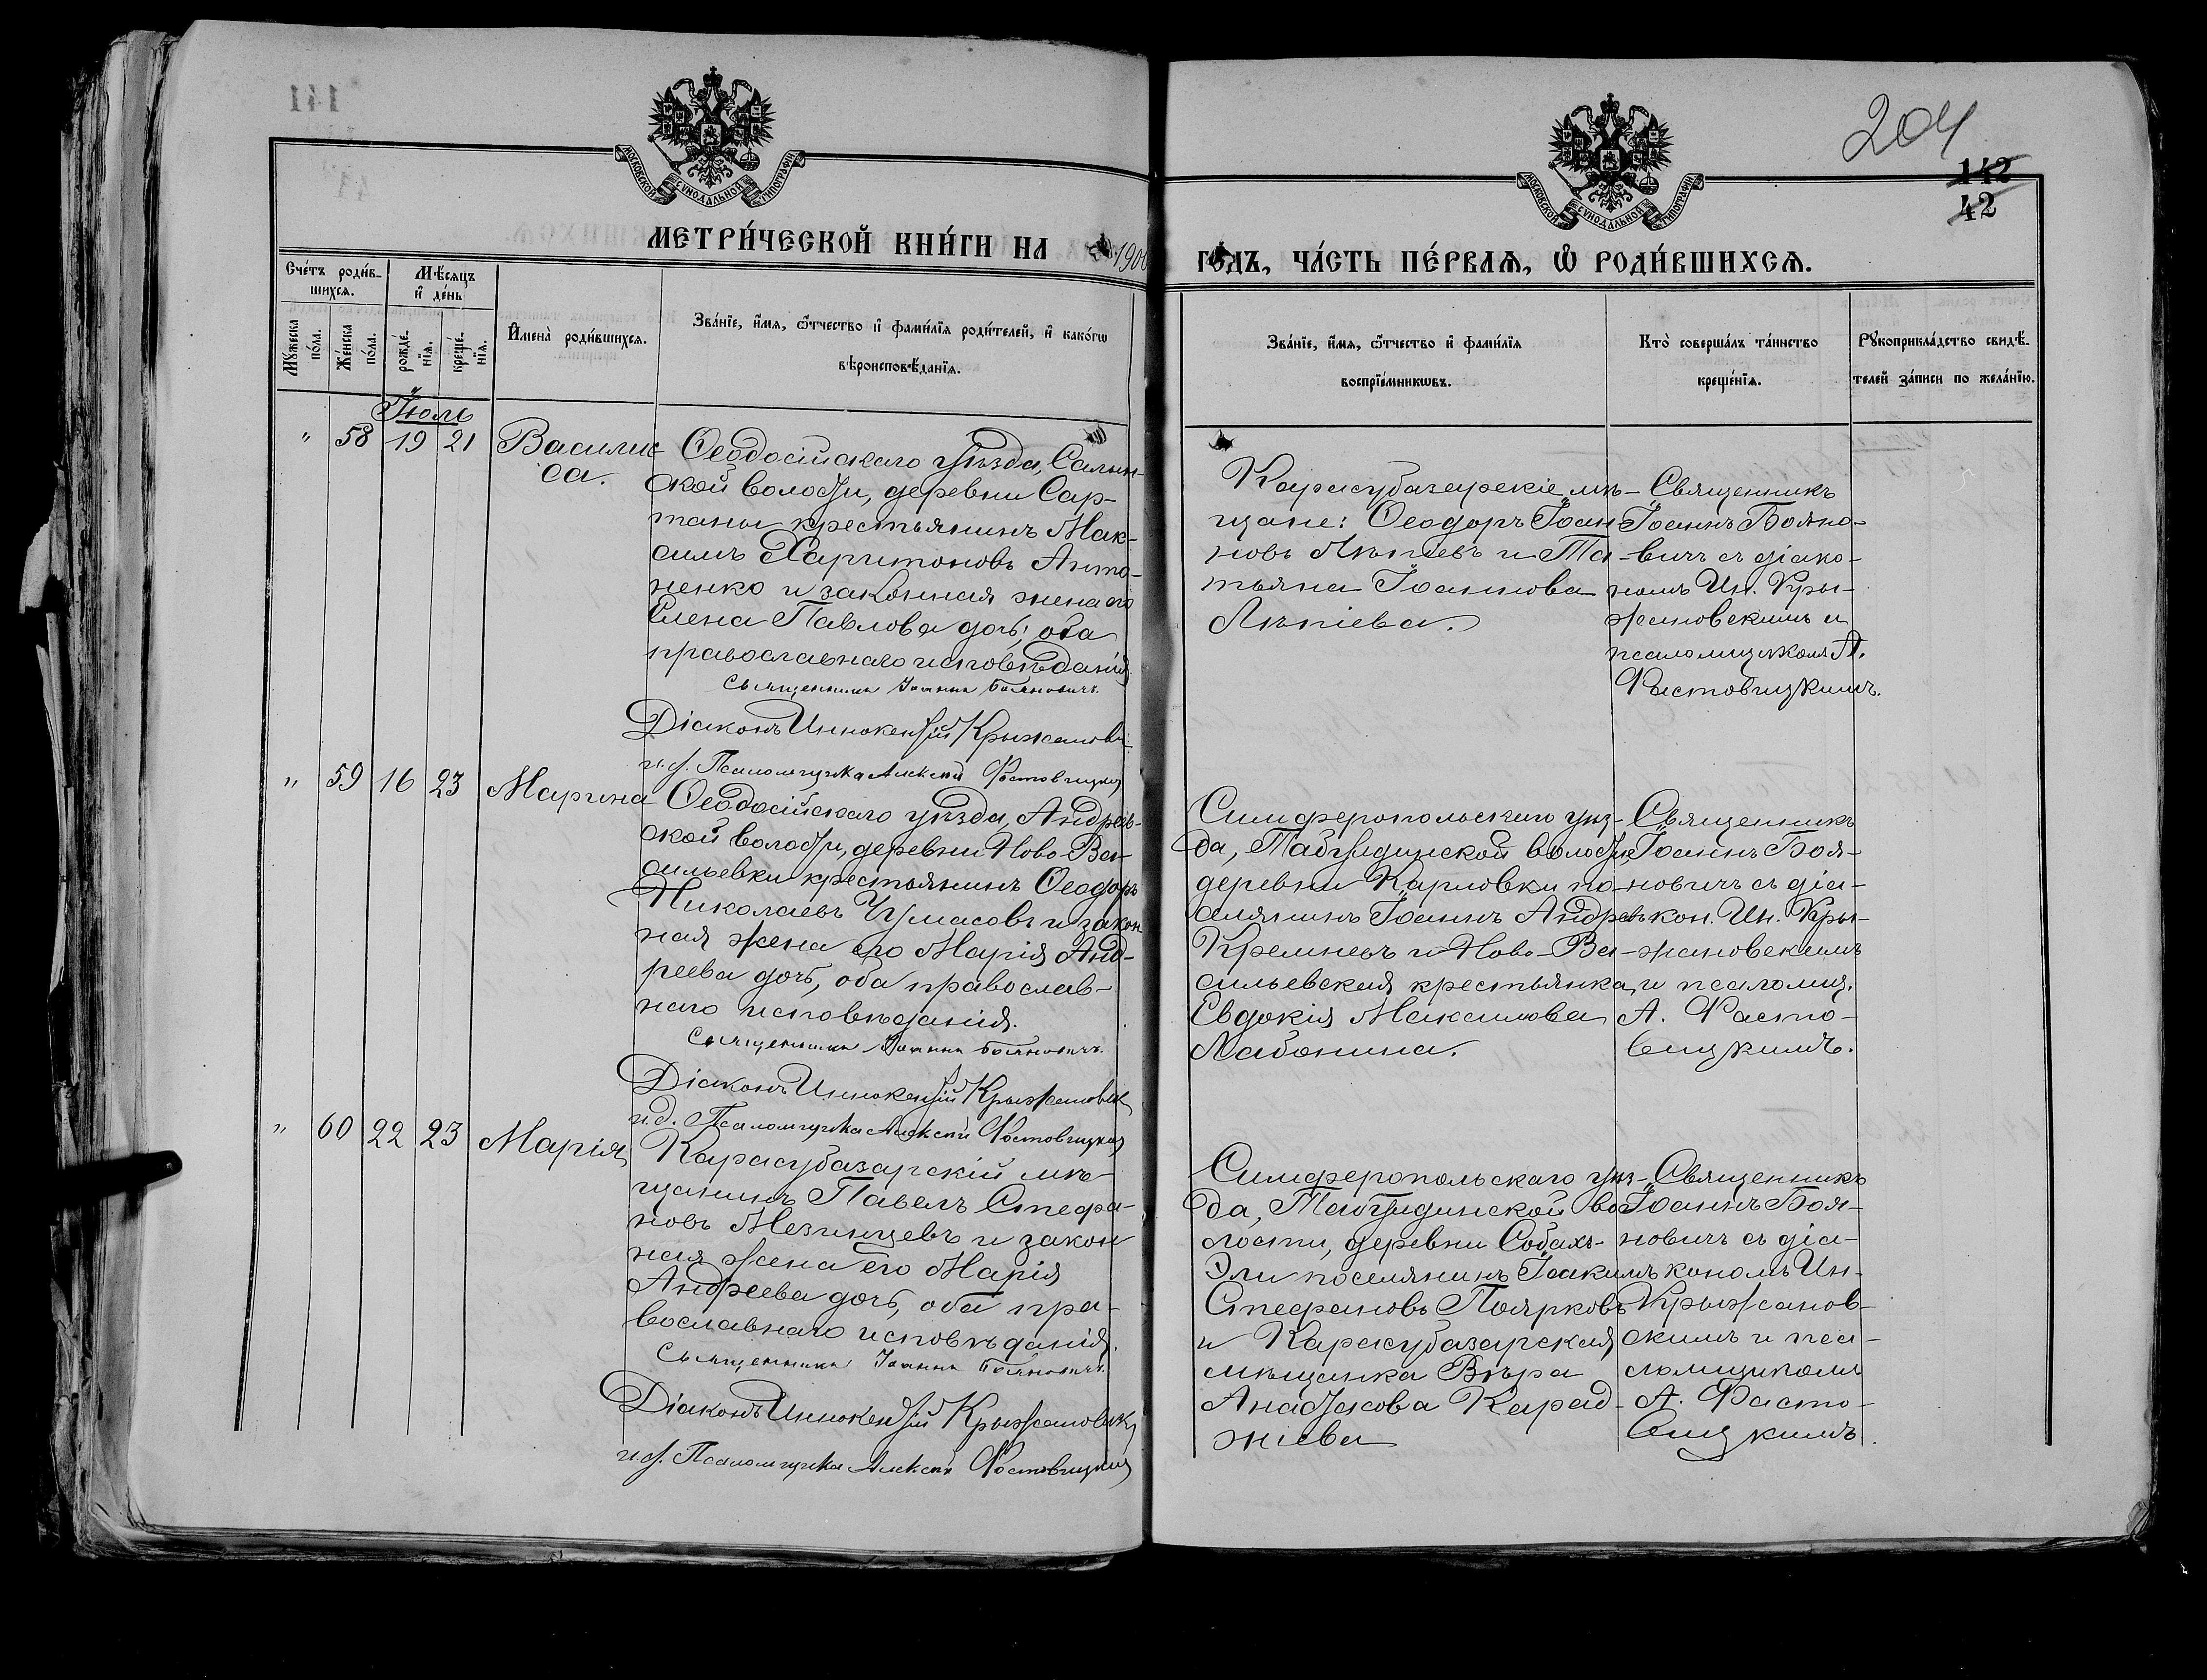 204
142
42
МОСКОВСКОЙ СѴНОДАЛЬНОЙ ТИПОГРАФІИ
МОСКОВСКОЙ СѴНОДАЛЬНОЙ ТИПОГРАФІИ
МЕТРИ́ЧЕСКОЙ КНИ́ГИ НА 1900
ГОДЪ, ЧА́СТЬ ПЕ́РВАѦ, Ѡ РОДИ́ВШИХСѦ.
Сче́тъ роди́в-
шихся.
Мѣ́сяцъ
и҆ де́нь
Мꙋ́жеска
по́ла.
Же́нска
по́ла.
рожде́-
нїя.
креще́-
нїя.
И҆мена̀ роди́вшихся.
Зва́нїе, и҆́мя, ѻ҆́тчество и҆ фами́лїя роди́телей, и҆ како́гѡ
вѣроисповѣ́данїя.
Зва́нїе, и҆́мя, ѻ҆́тчество и҆ фами́лїя
воспрїе́мникѡвъ.
Кто̀ соверша́лъ та́инство
креще́нїя.
Рꙋкоприкла́дство свидѣ́-
телей за́писи по жела́нїю.
Іюль
" 58 19 21 Василис-
са.
Ѳеодосійскаго уѣзда, Салын-
ской волости, деревни Сар-
таны крестьянинъ Мак-
симъ Харитоновъ Анто-
ненко и законная жена его
Елена Павлова дочь, оба
православнаго исповѣданія
Священникъ Іоаннъ Бояновичъ.
Діаконъ Иннокентій Крыжановск.
и.д. Псаломщика Алексѣй Фастовицкій
Карасубазарскіе мѣ-
щане: Ѳеодоръ Іоан
новъ Лѣпіевъ и Та-
тьяна Іоаннова
Лѣпіева.
Священникъ
Іоаннъ Бояно-
вичъ съ діако-
номъ Ин. Кры-
жановскимъ и
псаломщикомъ А.
Фастовицкимъ.
" 59 16 23 Марина
Ѳеодосійскаго уѣзда, Андреев-
ской волости, деревни Ново-Ва-
сильевки крестьянинъ Ѳеодоръ
Николаевъ Чумасовъ и закон
ная жена его Марія Анд-
реева дочь, оба православ-
наго исповѣданія.
Священникъ Іоаннъ Бояновичъ.
Діаконъ Иннокентій Крыжановск
и.д. Псаломщика Алексѣй Фастовицкій
Симферопольскаго уѣз-
да, Табулдинской волости,
деревни Карловки по-
селянинъ Іоаннъ Андреевъ
Кремневъ и Ново-Ва-
сильевская крестьянка
Евдокія Максимова
Лабонина.
Священникъ
Іоаннъ Боя-
новичъ съ діа-
кон. Ин. Кры-
жановскимъ
и псаломщ.
А. Фасто-
вицкимъ.
" 60 22 23 Марія
Карасубазарскій мѣ-
щанинъ Павелъ Стефа-
новъ Мезинцевъ и закон
ная жена его Марія
Андреева дочь, оба пра-
вославнаго исповѣданія.
Священникъ Іоаннъ Бояновичъ.
Діаконъ Иннокентій Крыжановск
и.д. Псаломщика Алексѣй Фастовицкій
Симферопольскаго уѣз-
да, Табулдинской во-
лости, деревни Собахъ-
Эли поселянинъ Іоакимъ
Стефановъ Поярковъ
и Карасубазарская
мѣщанка Вѣра
Анастасова Карад-
жіева
Священникъ
Іоаннъ Боя-
новичъ съ діа-
кономъ Ин.
Крыжанов-
скимъ и пса-
ломщикомъ
А. Фасто-
вицкимъ.